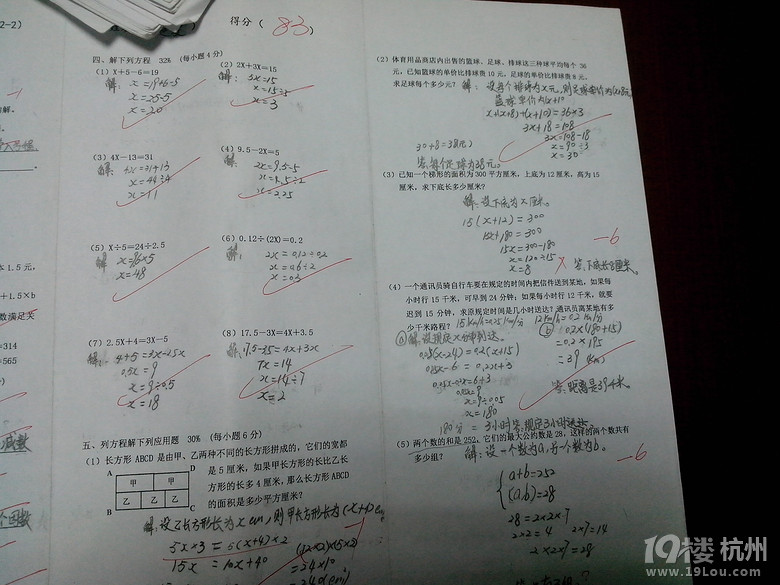 2-2)
得分(83)
四、解下列方程 32% (每小题4分)
(1) X+5-6=19
解: x=19+6-5
x=25-5
x=20
(2) 2X+3X=15
解: 5x=15
x=15÷5
x=3
(3) 4X-13=31
解: 4x=31+13
x=44÷4
x=11
(4) 9.5-2X=5
2x=9.5-5
x=4.5÷2
x=2.25
(5) X÷5=24÷2.5
解
x=48
(6) 0.12÷(2X)=0.2
解: 2x=0.12÷0.2
x=0.6÷2
x=0.3
(7) 2.5X+4=3X-5
解: 4+5=3x-2.5x
0.5x=9
x=9÷0.5
x=18
(8) 17.5-3X=4X+3.5
解: 17.5-3.5=4x+3x
7x=14
x=14÷7
x=2
五、列方程解下列应用题 30% (每小题6分)
(1) 长方形 ABCD 是由甲、乙两种不同的长方形拼成的,它们的宽都
是5厘米,如果甲长方形的长比乙长
方形的长多4厘米,那么长方形ABCD
的面积是多少平方厘米?
A D
甲 甲
乙 乙 乙
B C
解:设乙长方形长为x cm,则甲长方形长为(x+4)cm
-1
15x=10x+40
=24×10
(2) 体育用品商店内出售的篮球、足球、排球这三种球平均每个 36
元,已知篮球的单价比排球贵10元,足球的单价比排球贵8元,
求足球每个多少元?
解:设每个排球为x元,则足球单价为(x+8)元
篮球单价为x+10
x+(x+8)+(x+10)=36×3
3x+18=108
3x=108-18
x=90÷3
x=30
30+8=38(元)
答:每个足球为38元。
(3) 已知一个梯形的面积为300平方厘米,上底为12厘米,高为15
厘米,求下底长多少厘米?
解:设下底为x厘米。
15(x+12)=300
15x+180=300
15x=300-180
x=120÷15
x=8
答:下底长8厘米。
-6
(4) 一个通讯员骑自行车要在规定的时间内把信件送到某地,如果每
小时行15千米,可早到24分钟;如果每小时行12千米,就要
迟到15分钟,求原规定时间是几小时送达?通讯员离某地有多
少千米路程?
15km/h=0.25km/分
12km/h=0.2km/分
解:设规定x分钟到达。
0.25(x-24)=0.2(x+15)
0.25x-6=0.2x+3
0.25x-0.2x=6+3
0.05x=9
x=9÷0.05
x=180
180分=3小时
答:规定3小时送达。
0.2×(180+15)
=0.2×195
=39(km)
答:距离是39千米。
(5) 两个数的和是252,它们的最大公约数是28,这样的两个数共有
多少组?
解:设一个数为a,另一个数为b。
-6
a+b=252
(a,b)=28
28=2×2×7
2×2=4 2×7=14
2×2×7=28
-1
本1.5元,
+1.5×b
数满足关
=314
=565
19楼 杭州
www.19lou.com